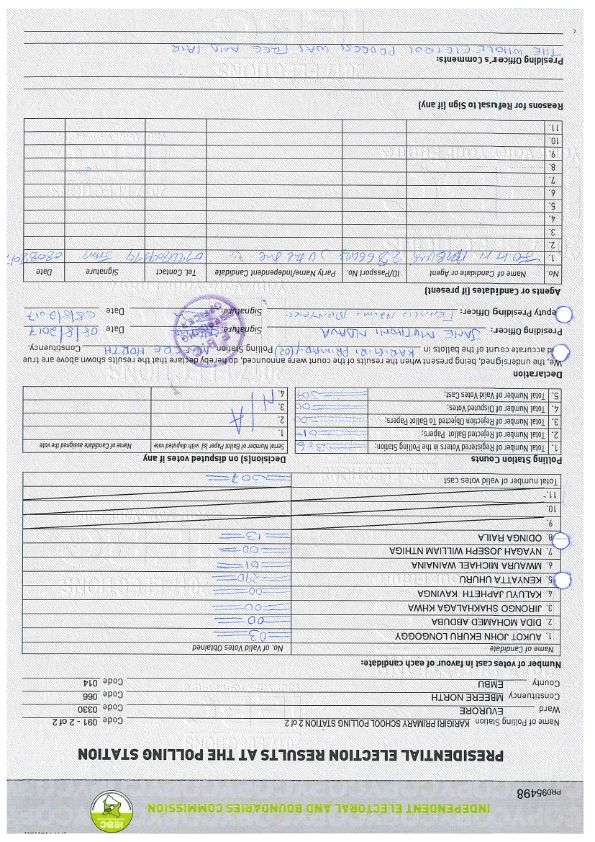 INDEPENDENT ELECTORAL AND BOUNDARIES COMMISSION
IEBC
PR095498
PRESIDENTIAL ELECTION RESULTS AT THE POLLING STATION
Name of Polling Station KARIGIRI PRIMARY SCHOOL POLLING STATION 2 OF 2 Code 091 - 2 of 2
Ward EVURORE Code 0330
Constituency MBEERE NORTH Code 066
County EMBU Code 014
Number of votes cast in favour of each candidate:
Name of Candidate No. of Valid Votes Obtained
1. AUKOT JOHN EKURU LONGOGGY 03
2. DIDA MOHAMED ABDUBA 00
3. JIRONGO SHAKHALAGA KHWA 00
4. KALUYU JAPHETH KAVINGA 00
5. KENYATTA UHURU 290
6. MWAURA MICHAEL WAINAINA 01
7. NYAGAH JOSEPH WILLIAM NTHIGA 00
8. ODINGA RAILA 13
9.
10.
11.
Total number of valid votes cast 307
Polling Station Counts
1. Total Number of Registered Voters in the Polling Station:
2. Total Number of Rejected Ballot Papers: 01
3. Total Number of Rejection Objected To Ballot Papers. 00
4. Total Number of Disputed Votes: 00
5. Total Number of Valid Votes Cast: 307
Decision(s) on disputed votes if any
Serial Number of Ballot Paper (s) with disputed vote Name of Candidate assigned the vote
1.
2.
3.
4.
N/A
Declaration
We, the undersigned, being present when the results of the count were announced, do hereby declare that the results shown above are true
and accurate count of the ballots in KARIGIRI PRIMARY (02) Polling Station MBEERE NORTH Constituency.
Presiding Officer: JANE MUTHONI NDAVA Signature: Date 08/8/2017
Deputy Presiding Officer: Signature: Date 08/8/2017
Agents or Candidates (if present)
No. Name of Candidate or Agent ID/Passport No. Party Name/Independent Candidate Tel. Contact Signature Date
1. JOHN JUBILEE
2.
3.
4.
5.
6.
7.
8.
9.
10.
11.
Reasons for Refusal to Sign (if any)
Presiding Officer's Comments:
THE WHOLE ELECTORAL PROCESS WAS FREE AND FAIR